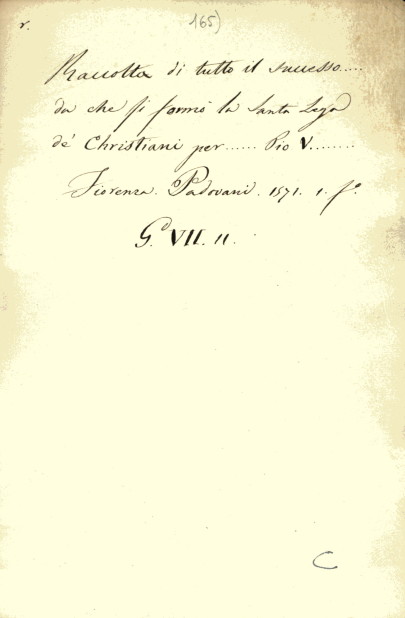 r.
165)
Raccolta di tutto il successo.....
da che si formò la Santa Lega
de' Christiani per...... Pio V........
Fiorenza. Padovani. 1571. 1. f.o
G. VII. 11.
C